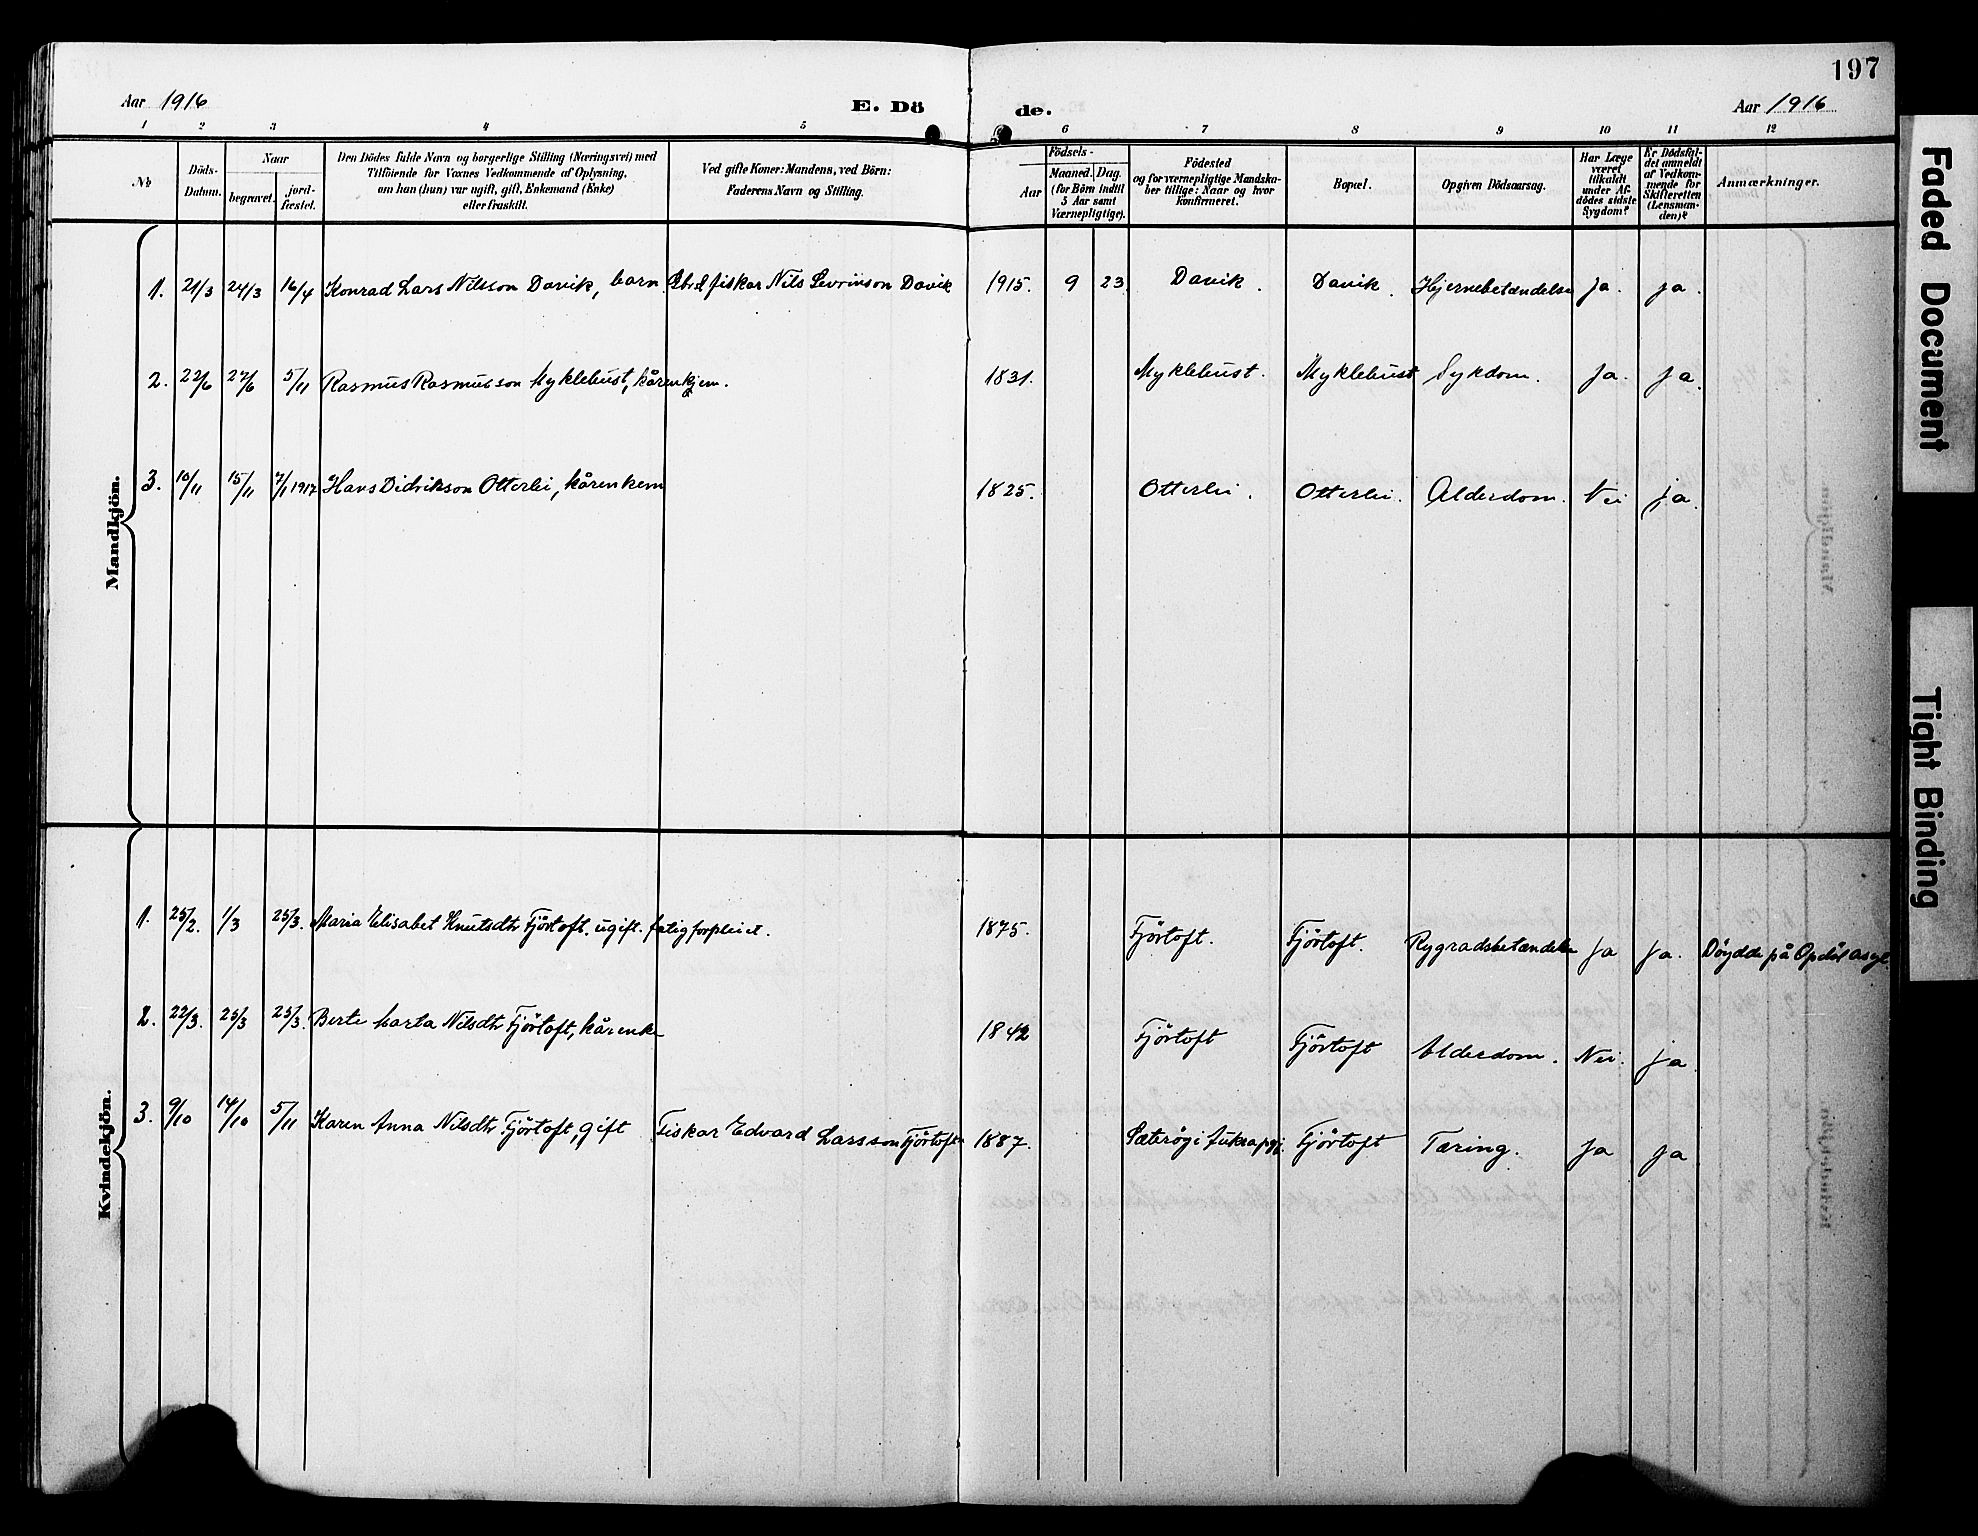 197
Aar 1916
E. Döde.
Aar 1916
1 2 3 4 5 6 7 8 9 10 11 12
No
Döds-Datum.
Naar
begravet.
jord-fæstet.
Den Dödes fulde Navn og borgerlige Stilling (Næringsvei) med
Tilföiende for Voxnes Vedkommende af Oplysning,
om han (hun) var ugift, gift, Enkemand (Enke)
eller fraskilt.
Ved gifte Koner: Mandens, ved Börn:
Faderens Navn og Stilling.
Födsels-
Aar
Maaned. Dag.
(for Börn indtil
5 Aar samt
Værnepligtige).
Födested
og for værnepligtige Mandska-
ber tillige: Naar og hvor
konfirmeret.
Bopæl.
Opgiven Dödsaarsag.
Har Læge
været
tilkaldt
under Af-
dödes sidste
Sygdom?
Er Dödsfal-
det anmeldt
af Vedkom-
mende for
Skifteretten
(Lensman-
den)?
Anmærkninger.
Mandkjön.
1. 21/3 24/3 16/4 Konrad Lars Nilsson Davik, barn fiskar Nils Sevrinson Davik 1915. 9 23 Davik. Davik. Hjernebetændelse ja. ja.
2. 22/6 27/6 5/11 Rasmus Rasmusson Myklebust, kårenkjem. 1831. Myklebust. Myklebust Sykdom. ja. ja.
3. 10/11 15/11 7/1 1917 Hans Didrikson Otterlei, kårenkem 1825. Otterlei. Otterlei. Alderdom. Nei ja.
Kvindekjön.
1. 25/2. 1/3 25/3. Maria Elisabet Knutsdtr Fjörtoft. ugift. fatigforpleiet. 1875. Fjörtoft. Fjörtoft. Rygradsbetændelse ja ja. Döydde på Opdöl asyl.
2. 22/3. 25/3 25/3. Berte Marta Nilsdtr Fjörtoft, kårenke 1842 Fjörtoft Fjörtoft Alderdom. Nei. ja
3. 9/10 14/10 5/11 Karen Anna Nilsdtr Fjörtoft, gift Fiskar Edvard Larsson Fjörtoft 1887. Sæteröy i Aukra pgj. Fjörtoft Tæring. ja ja
Faded Document
Tight Binding